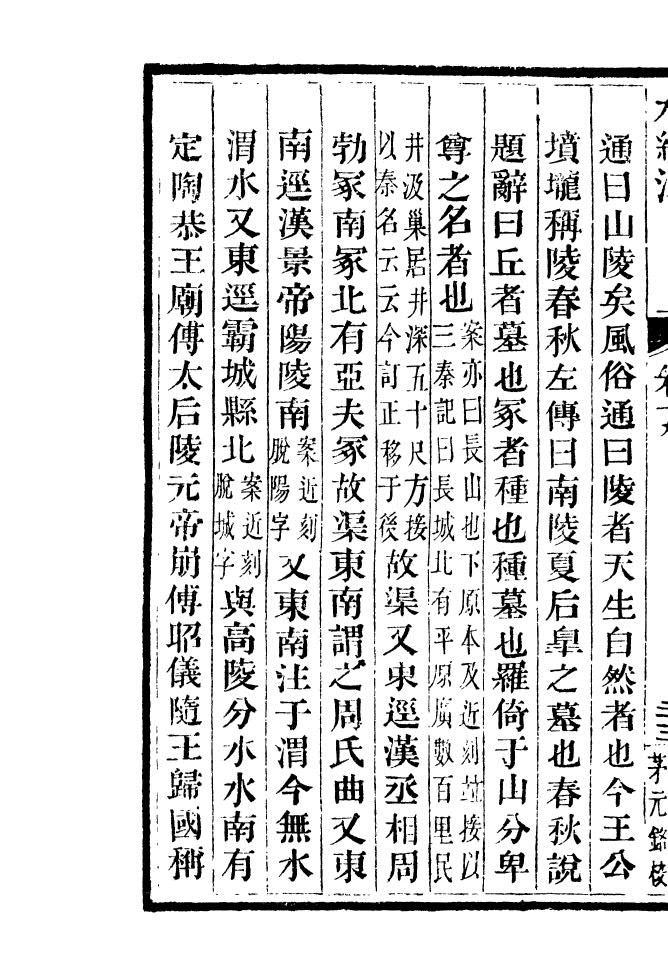 茅元銘校
通曰山陵矣風俗通曰陵者天生自然者也今王公
墳壠稱陵春秋左傳曰南陵夏后臯之墓也春秋說
題辭曰丘者墓也冢者種也種墓也羅倚于山分卑
尊之名者也案亦曰長山也下原本及近刻竝接以三秦記曰長城北有平原廣數百里民
井汲巢居井深五十尺方接以秦名云云今訂正移于後故渠又東逕漢丞相周
勃冢南冢北有亞夫冢故渠東南謂之周氏曲又東
南逕漢景帝陽陵南案近刻脫陽字又東南注于渭今無水
渭水又東逕霸城縣北案近刻脫城字與高陵分水水南有
定陶恭王廟傅太后陵元帝崩傅昭儀隨王歸國稱